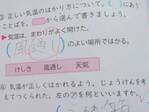 ③ 正しい気温のはかり方について、( )にあう
ことばを、　から選んで書きましょう。
▶気温は、まわりがよく開けた、
(風通し)のよい場所ではかる。
けしき　風通し　天気
④ 気温が正しくはかれるよう、じょうけんを考
えてつくられた、右の
を何といいますか。